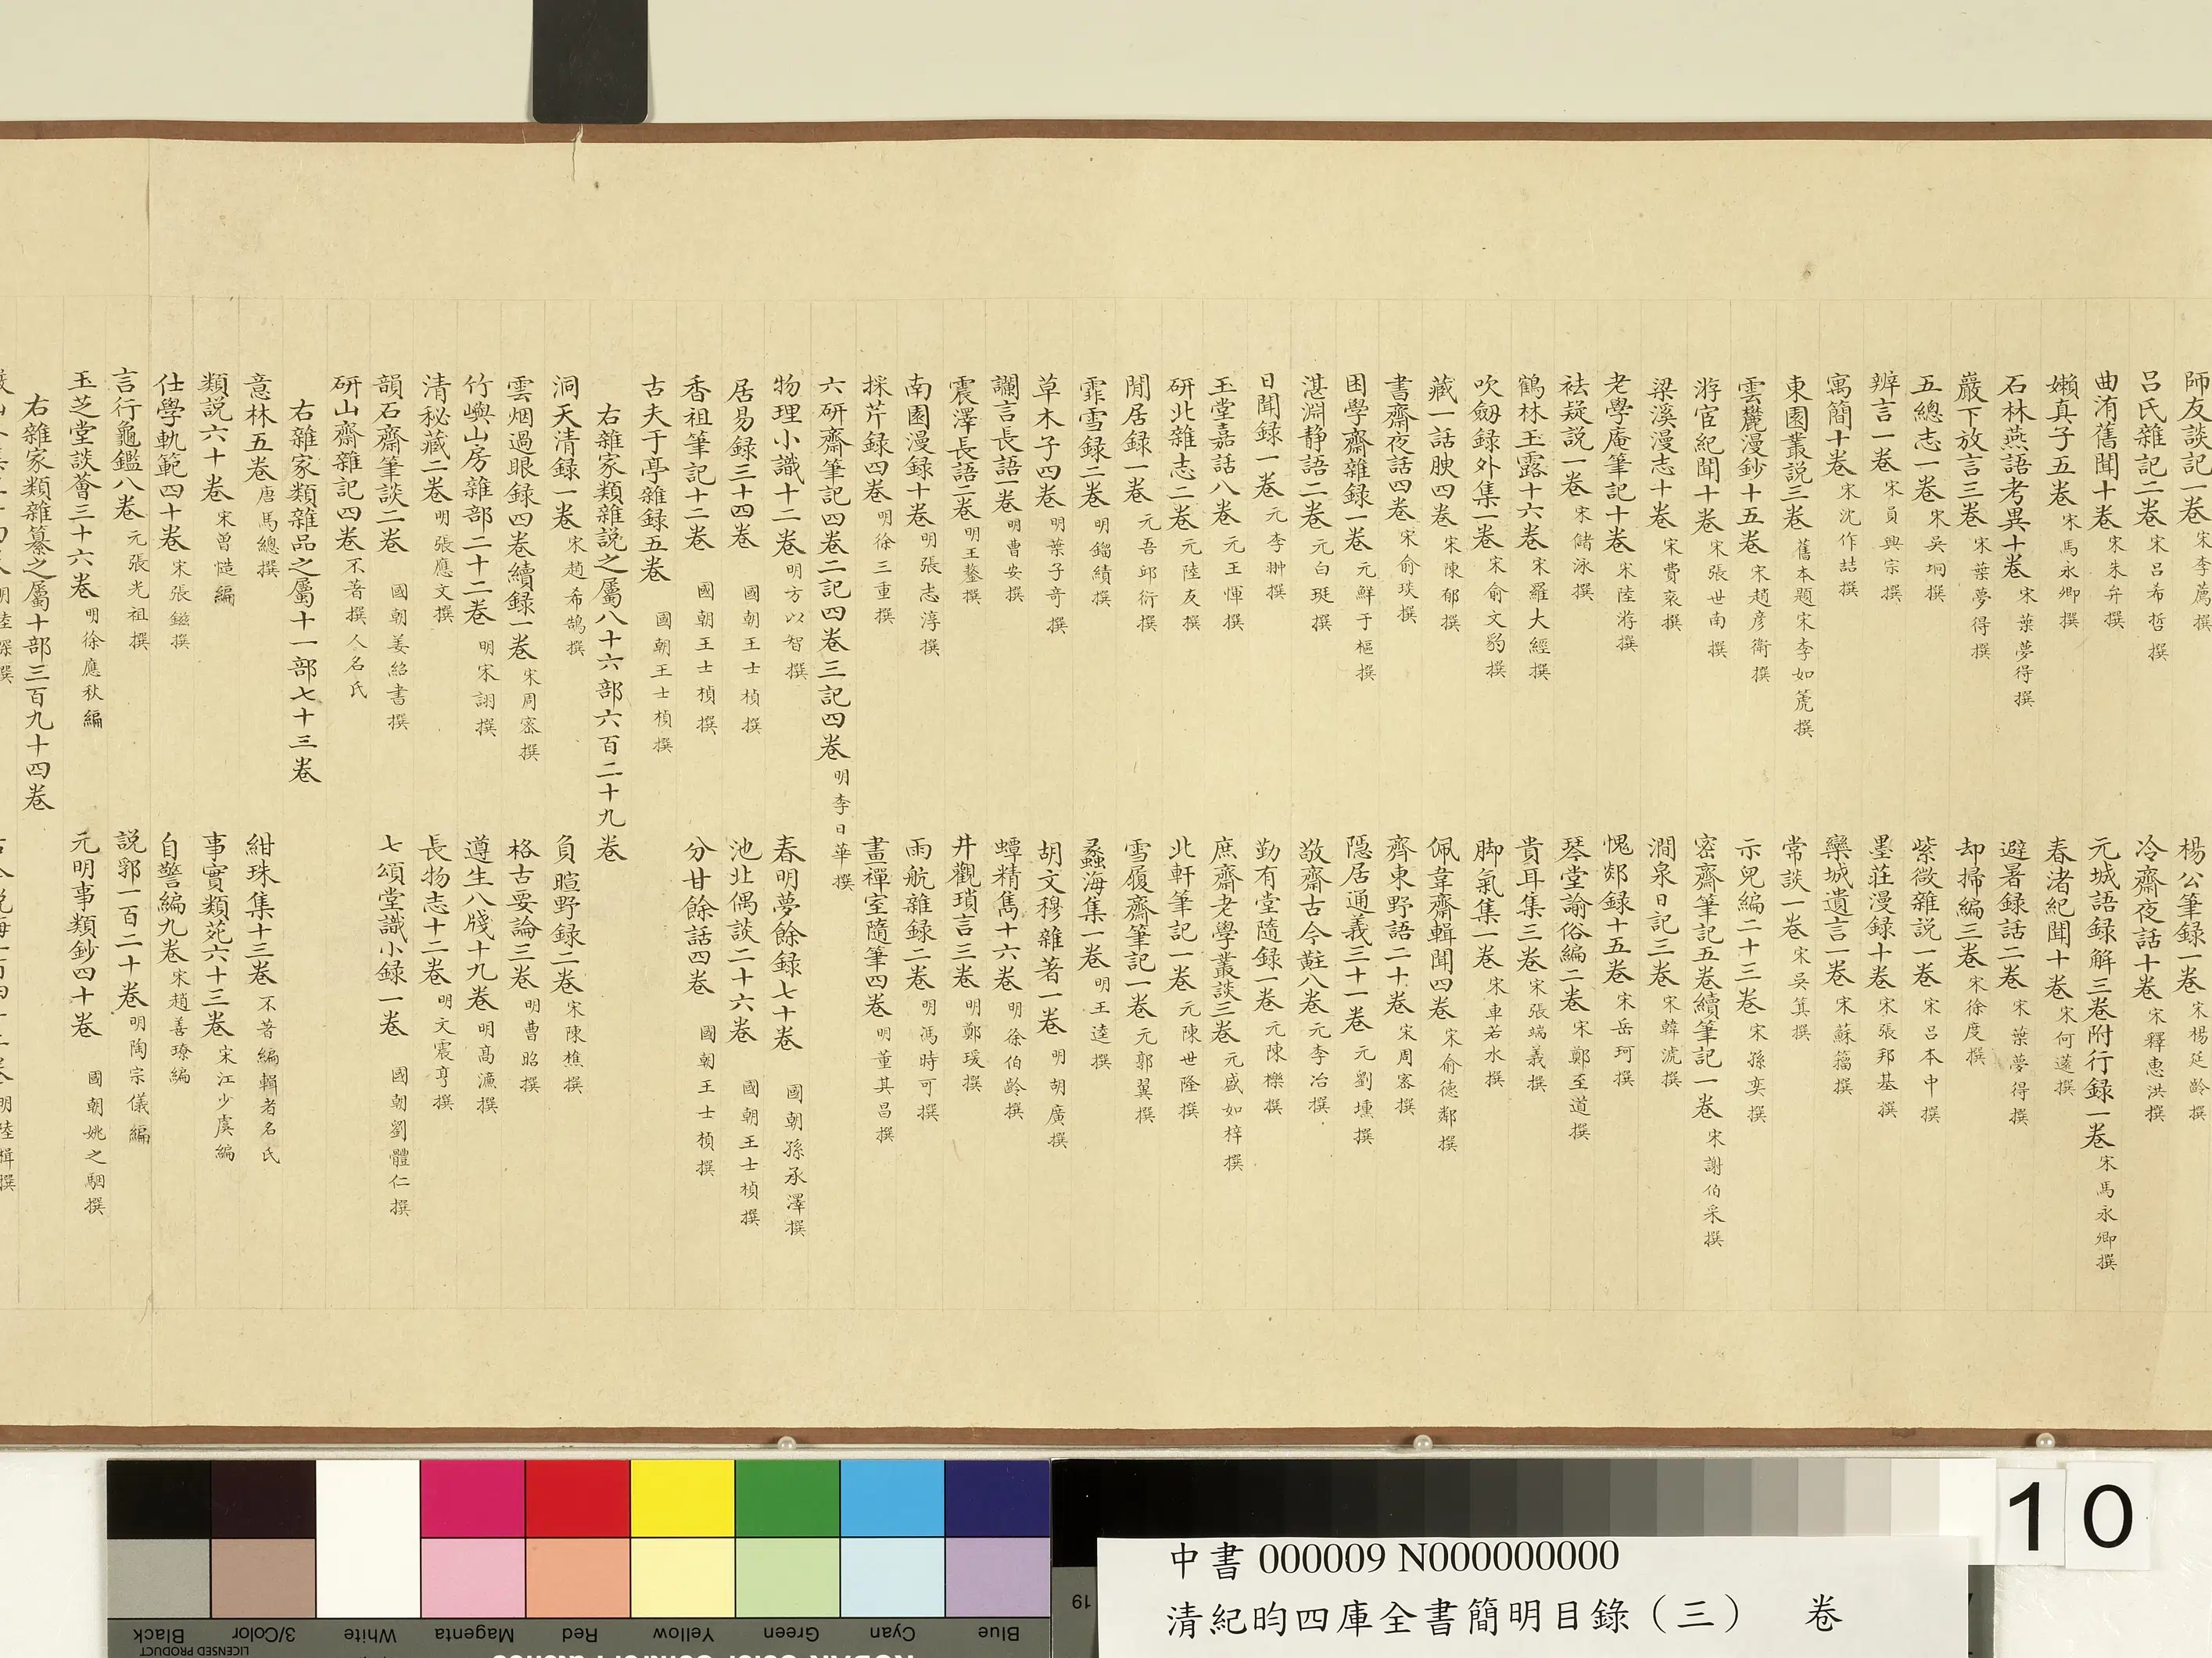 師友談記一卷 宋李廌撰 楊公筆録一卷 宋楊延齡撰
呂氏雜記二卷 宋呂希哲撰 冷齋夜話十卷 宋釋惠洪撰
曲洧舊聞十卷 宋朱弁撰 元城語録解三卷附行録一卷 宋馬永卿撰
嬾真子五卷 宋馬永卿撰 春渚紀聞十卷 宋何薳撰
石林燕語考異十卷 宋葉夢得撰 避暑録話二卷 宋葉夢得撰
巖下放言三卷 宋葉夢得撰 却掃編三卷 宋徐度撰
五總志一卷 宋吳坰撰 紫微雜説一卷 宋呂本中撰
辨言一卷 宋員興宗撰 墨莊漫録十卷 宋張邦基撰
寓簡十卷 宋沈作喆撰 欒城遺言一卷 宋蘇籀撰
東園叢説三卷 舊本題宋李如箎撰 常談一卷 宋吳箕撰
雲麓漫鈔十五卷 宋趙彥衛撰 示兒編二十三卷 宋孫奕撰
游宦紀聞十卷 宋張世南撰 密齋筆記五卷續筆記一卷 宋謝伯采撰
梁溪漫志十卷 宋費袞撰 澗泉日記三卷 宋韓淲撰
老學庵筆記十卷 宋陸游撰 愧郯録十五卷 宋岳珂撰
祛疑説一卷 宋儲泳撰 琴堂諭俗編二卷 宋鄭至道撰
鶴林玉露十六卷 宋羅大經撰 貴耳集三卷 宋張端義撰
吹劒録外集一卷 宋俞文豹撰 脚氣集一卷 宋車若水撰
藏一話腴四卷 宋陳郁撰 佩韋齋輯聞四卷 宋俞德鄰撰
書齋夜話四卷 宋俞琰撰 齊東野語二十卷 宋周密撰
困學齋雜録一卷 元鮮于樞撰 隱居通義三十一卷 元劉壎撰
湛淵静語二卷 元白珽撰 敬齋古今黈八卷 元李冶撰
日聞録一卷 元李翀撰 勤有堂隨録一卷 元陳櫟撰
玉堂嘉話八卷 元王惲撰 庶齋老學叢談三卷 元盛如梓撰
研北雜志二卷 元陸友撰 北軒筆記一卷 元陳世隆撰
閒居録一卷 元吾邱衍撰 雪履齋筆記一卷 元郭翼撰
霏雪録二卷 明鎦績撰 蠡海集一卷 明王逵撰
草木子四卷 明葉子奇撰 胡文穆雜著一卷 明胡廣撰
讕言長語一卷 明曹安撰 蟫精雋十六卷 明徐伯齡撰
震澤長語二卷 明王鏊撰 井觀瑣言三卷 明鄭瑗撰
南園漫録十卷 明張志淳撰 雨航雜録二卷 明馮時可撰
採芹録四卷 明徐三重撰 畫禪室隨筆四卷 明董其昌撰
六研齋筆記四卷二記四卷三記四卷 明李日華撰
物理小識十二卷 明方以智撰 春明夢餘録七十卷 國朝孫承澤撰
居易録三十四卷 國朝王士楨撰 池北偶談二十六卷 國朝王士楨撰
香祖筆記十二卷 國朝王士楨撰 分甘餘話四卷 國朝王士楨撰
古夫于亭雜録五卷 國朝王士楨撰
右雜家類雜説之屬八十六部六百二十九卷
洞天清録一卷 宋趙希鵠撰 負暄野録二卷 宋陳槱撰
雲烟過眼録四卷續録一卷 宋周密撰 格古要論三卷 明曹昭撰
竹嶼山房雜部二十二卷 明宋詡撰 遵生八牋十九卷 明高濂撰
清秘藏二卷 明張應文撰 長物志十二卷 明文震亨撰
韻石齋筆談二卷 國朝姜紹書撰 七頌堂識小録一卷 國朝劉體仁撰
研山齋雜記四卷 不著撰人名氏
右雜家類雜品之屬十一部七十三卷
意林五卷 唐馬總撰 紺珠集十三卷 不著編輯者名氏
類説六十卷 宋曾慥編 事實類苑六十三卷 宋江少虞編
仕學軌範四十卷 宋張鎡撰 自警編九卷 宋趙善璙編
言行龜鑑八卷 元張光祖撰 説郛一百二十卷 明陶宗儀編
玉芝堂談薈三十六卷 明徐應秋編 元明事類鈔四十卷 國朝姚之駰撰
右雜家類雜纂之屬十部三百九十四卷
10
中書 000009 N000000000
清紀昀四庫全書簡明目錄（三） 卷
19
Blue
Cyan
Green
Yellow
Red
Magenta
White
3/Color
Black
LICENSED PRODUCT